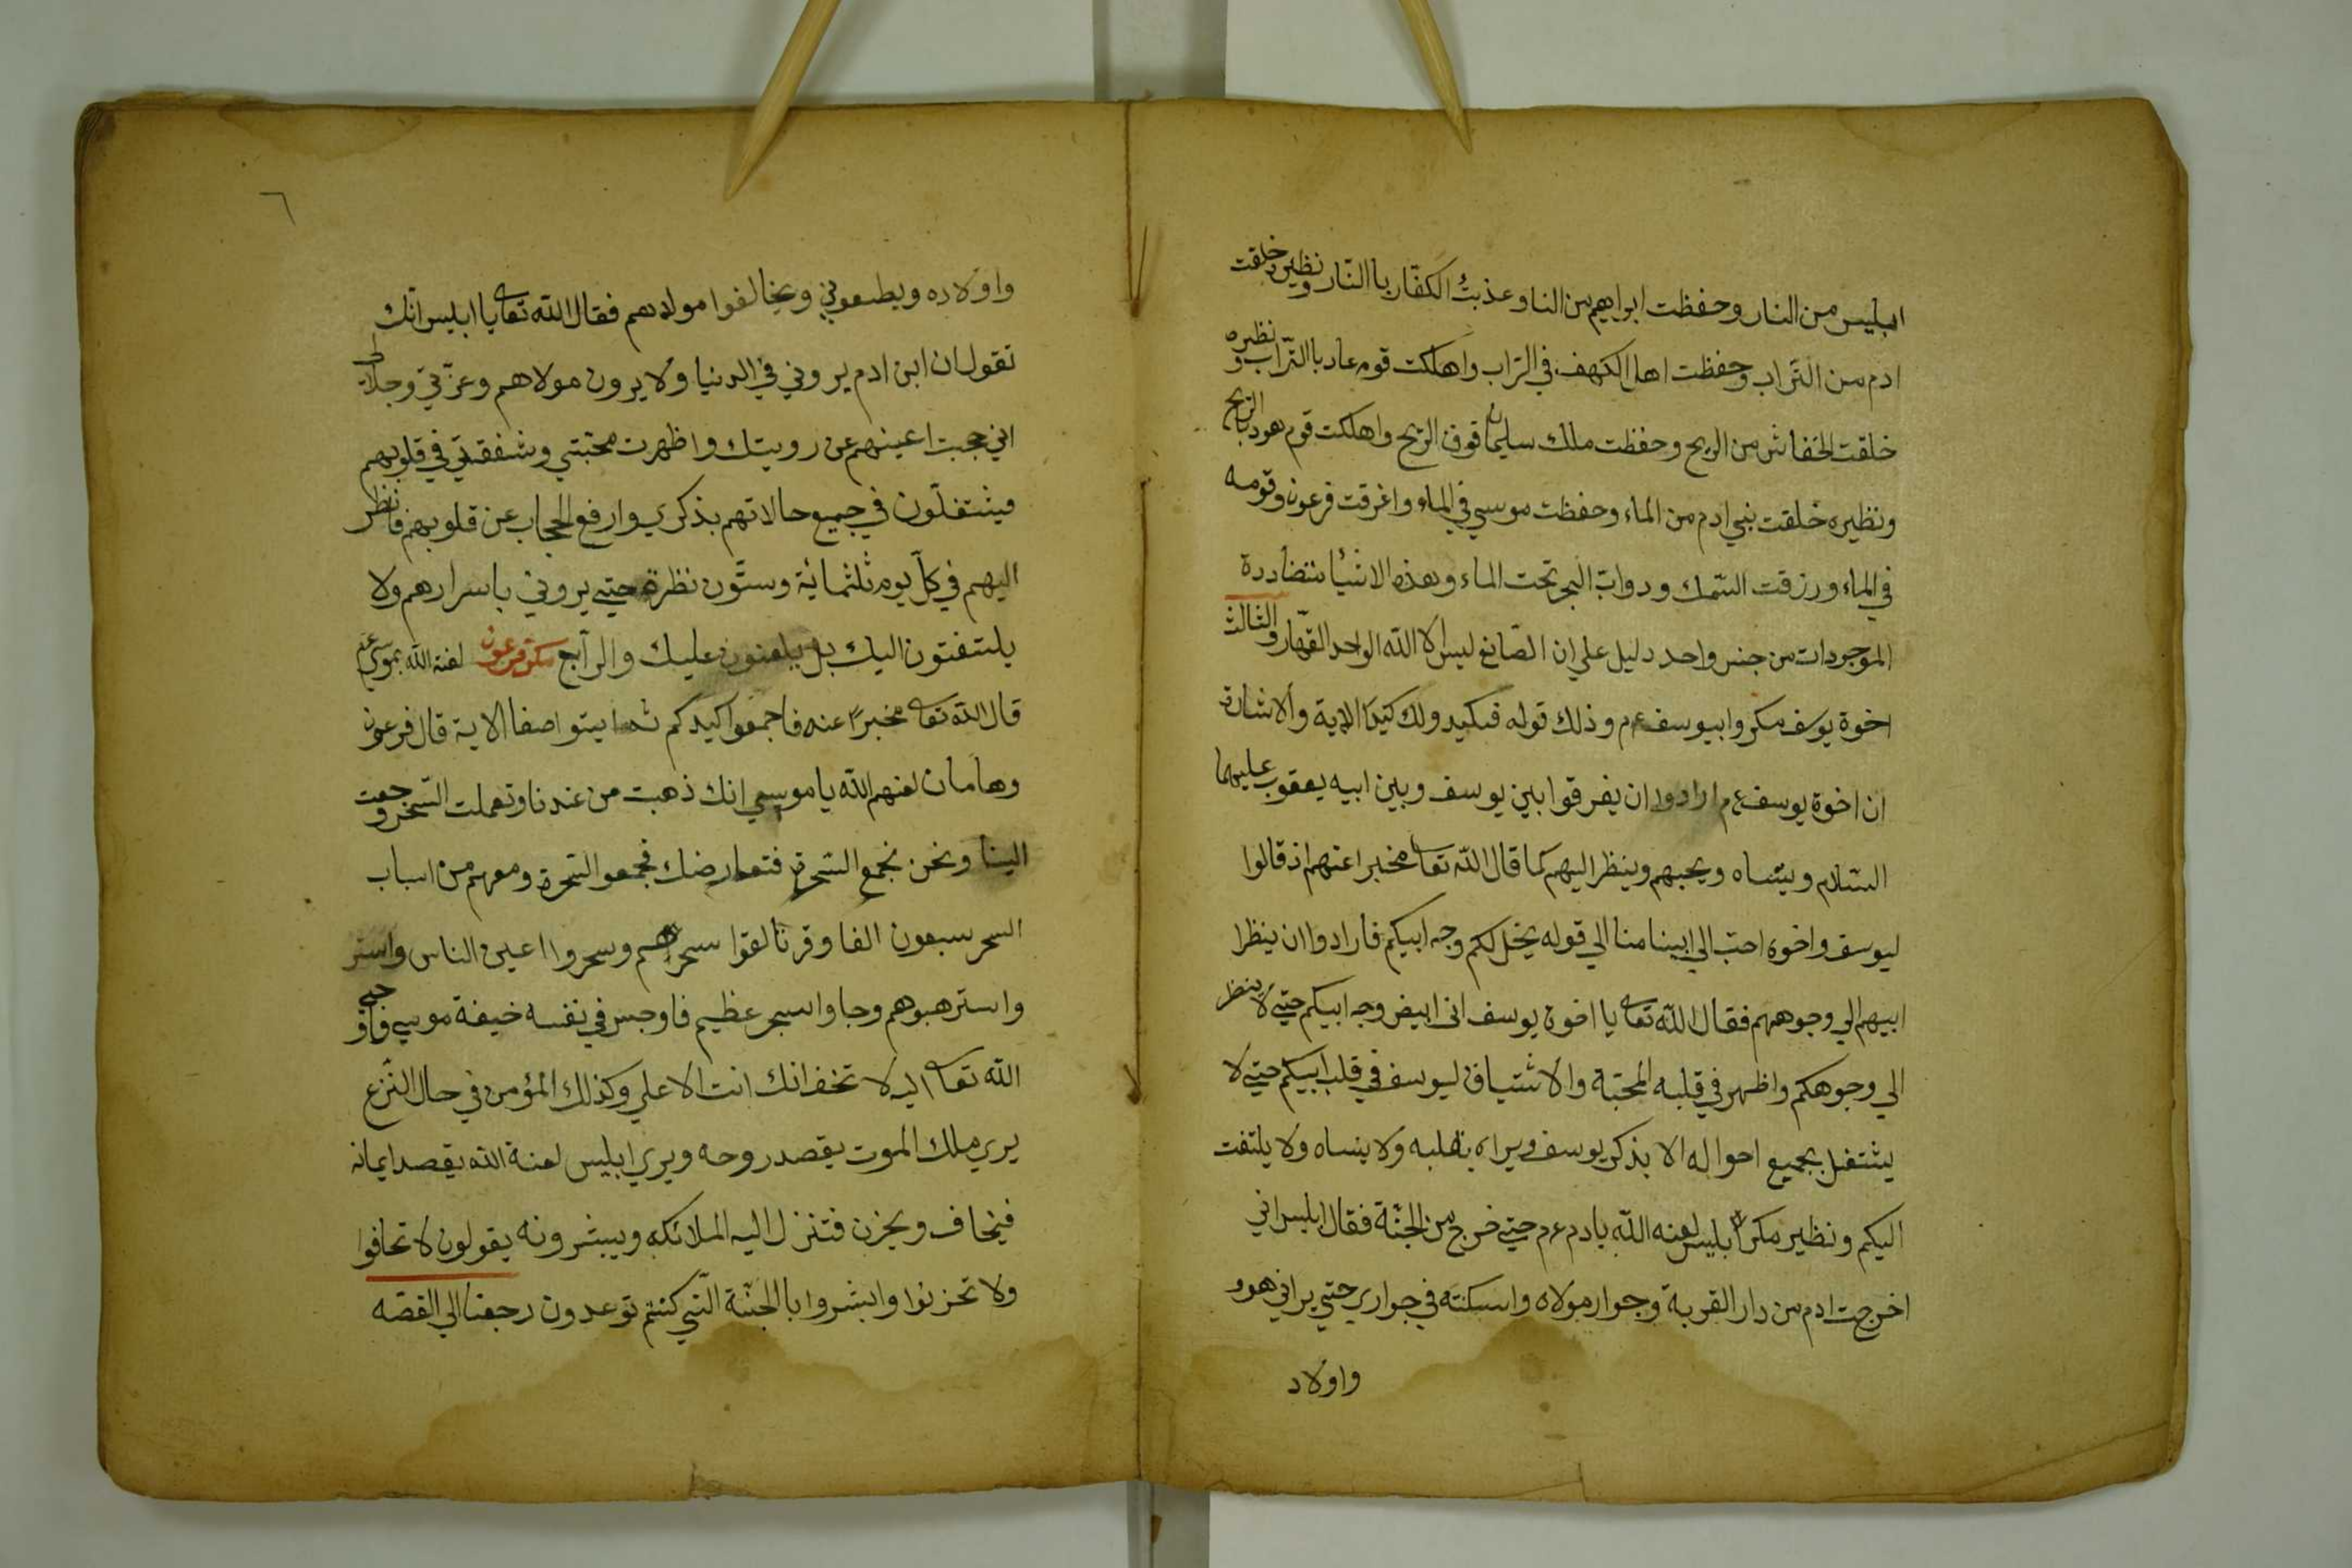 ابليس من النار وحفظت ابراهيم من النا وعذبتُ الكفّار باالنّار ونظيره خلقت
ادم من التّراب وحفظت اهل الكهف في التراب واهلكت قوم عاد باالتّراب ونظيره
خلقت الخفاش من الريح وحفظت ملك سليمان فوق الريح واهلكت قوم هود باالريح
ونظيره خلقت بني ادم من الماء وحفظت موسي في الماء واغرقت فرعون وقومه
في الماء ورزقت السّمك ودوابّ البحر تحت الماء وهذه الاشيا متضاددة
الموجودات من جنس واحد دليل علي ان الصّانع ليس الا اللّه الواحد القهّار والثالث
اخوة يوسف مكروا بيوسف عم وذلك قوله فيكيدو لك كيدا الاية والاشارة
ان اخوة يوسف عم ارادوا ان يفرقوا بين يوسف وبين ابيه يعقوب عليهما
السّلام وينساه ويحبهم وينظر اليهم كما قال اللّه تعا مخبرا عنهم اذ قالوا
ليوسف واخوه احبّ الي ابينا منا الي قوله يخل لكم وجه ابيكم فارادوا ان ينظرا
ابيهم الي وجوههم فقال اللّه تعا يا اخوة يوسف انى ابيض وجه ابيكم حتي لا ينظر
الي وجوهكم واظهر في قلبه المحبّة والاشتياق ليوسف في قلب ابيكم حتي لا
يشتغل بجميع احواله الا بذكر يوسف ويراه بقلبه ولا ينساه ولا يلتفت
اليكم ونظير مكر ابليس لعنه اللّه بادم عم حتي خرج من الجنّة فقال ابليس اني
اخرجت ادم من دار القربة وجوار مولاه واسكنته في جواري حتي يراني هوو
واولاد
٦
واولاده ويطيعوني ويخالفوا مولاهم فقال اللّه تعا يا ابليس انّك
تقول ان ابن ادم يروني في الدنيا ولا يرون مولاهم وعزّتي وجلالي
اني حجبت اعينهم عن رويتك واظهرت محبّتي وشفقتي في قلوبهم
فيشتغلون في جميع حالاتهم بذكري وارفع الحجاب عن قلوبهم فانظر
اليهم في كلّ يوم ثلثمائة وستّون نظرة حتي يروني باسرارهم ولا
يلتفتون اليك بل يلعنون عليك والرابع مكر فرعون لعنة اللّه بموسي عم
قال اللّه تعا مخبرًا عنه فاجمعوا كيدكم ثم ايتوا صفا الاية قال فرعون
وهامان لعنهم اللّه يا موسي انك ذهبت من عندنا وتعملت السّحر وجعت
الينا ونحن نجمع السّحرة فتعارضك فجمعو السّحرة ومعهم من اسباب
السحر سبعون الفا وقرنا لقوا سحرهم وسحروا اعين الناس واستر
واسترهبوهم وجاوا بسحر عظيم فاوجس في نفسه خيفة موسي فاوحي
اللّه تعا اليه لا تخف انك انت الاعلي وكذلك المؤمن في حال النّزع
يري ملك الموت يقصد روحه ويري ابليس لعنة اللّه يقصد ايمانه
فيخاف ويحزن فتنزل اليه الملائكه ويبشرونه يقولون لا تخافوا
ولا تحزنوا وابشروا باالجنّة الّتي كنتم توعدون رجعنا الي القصّه